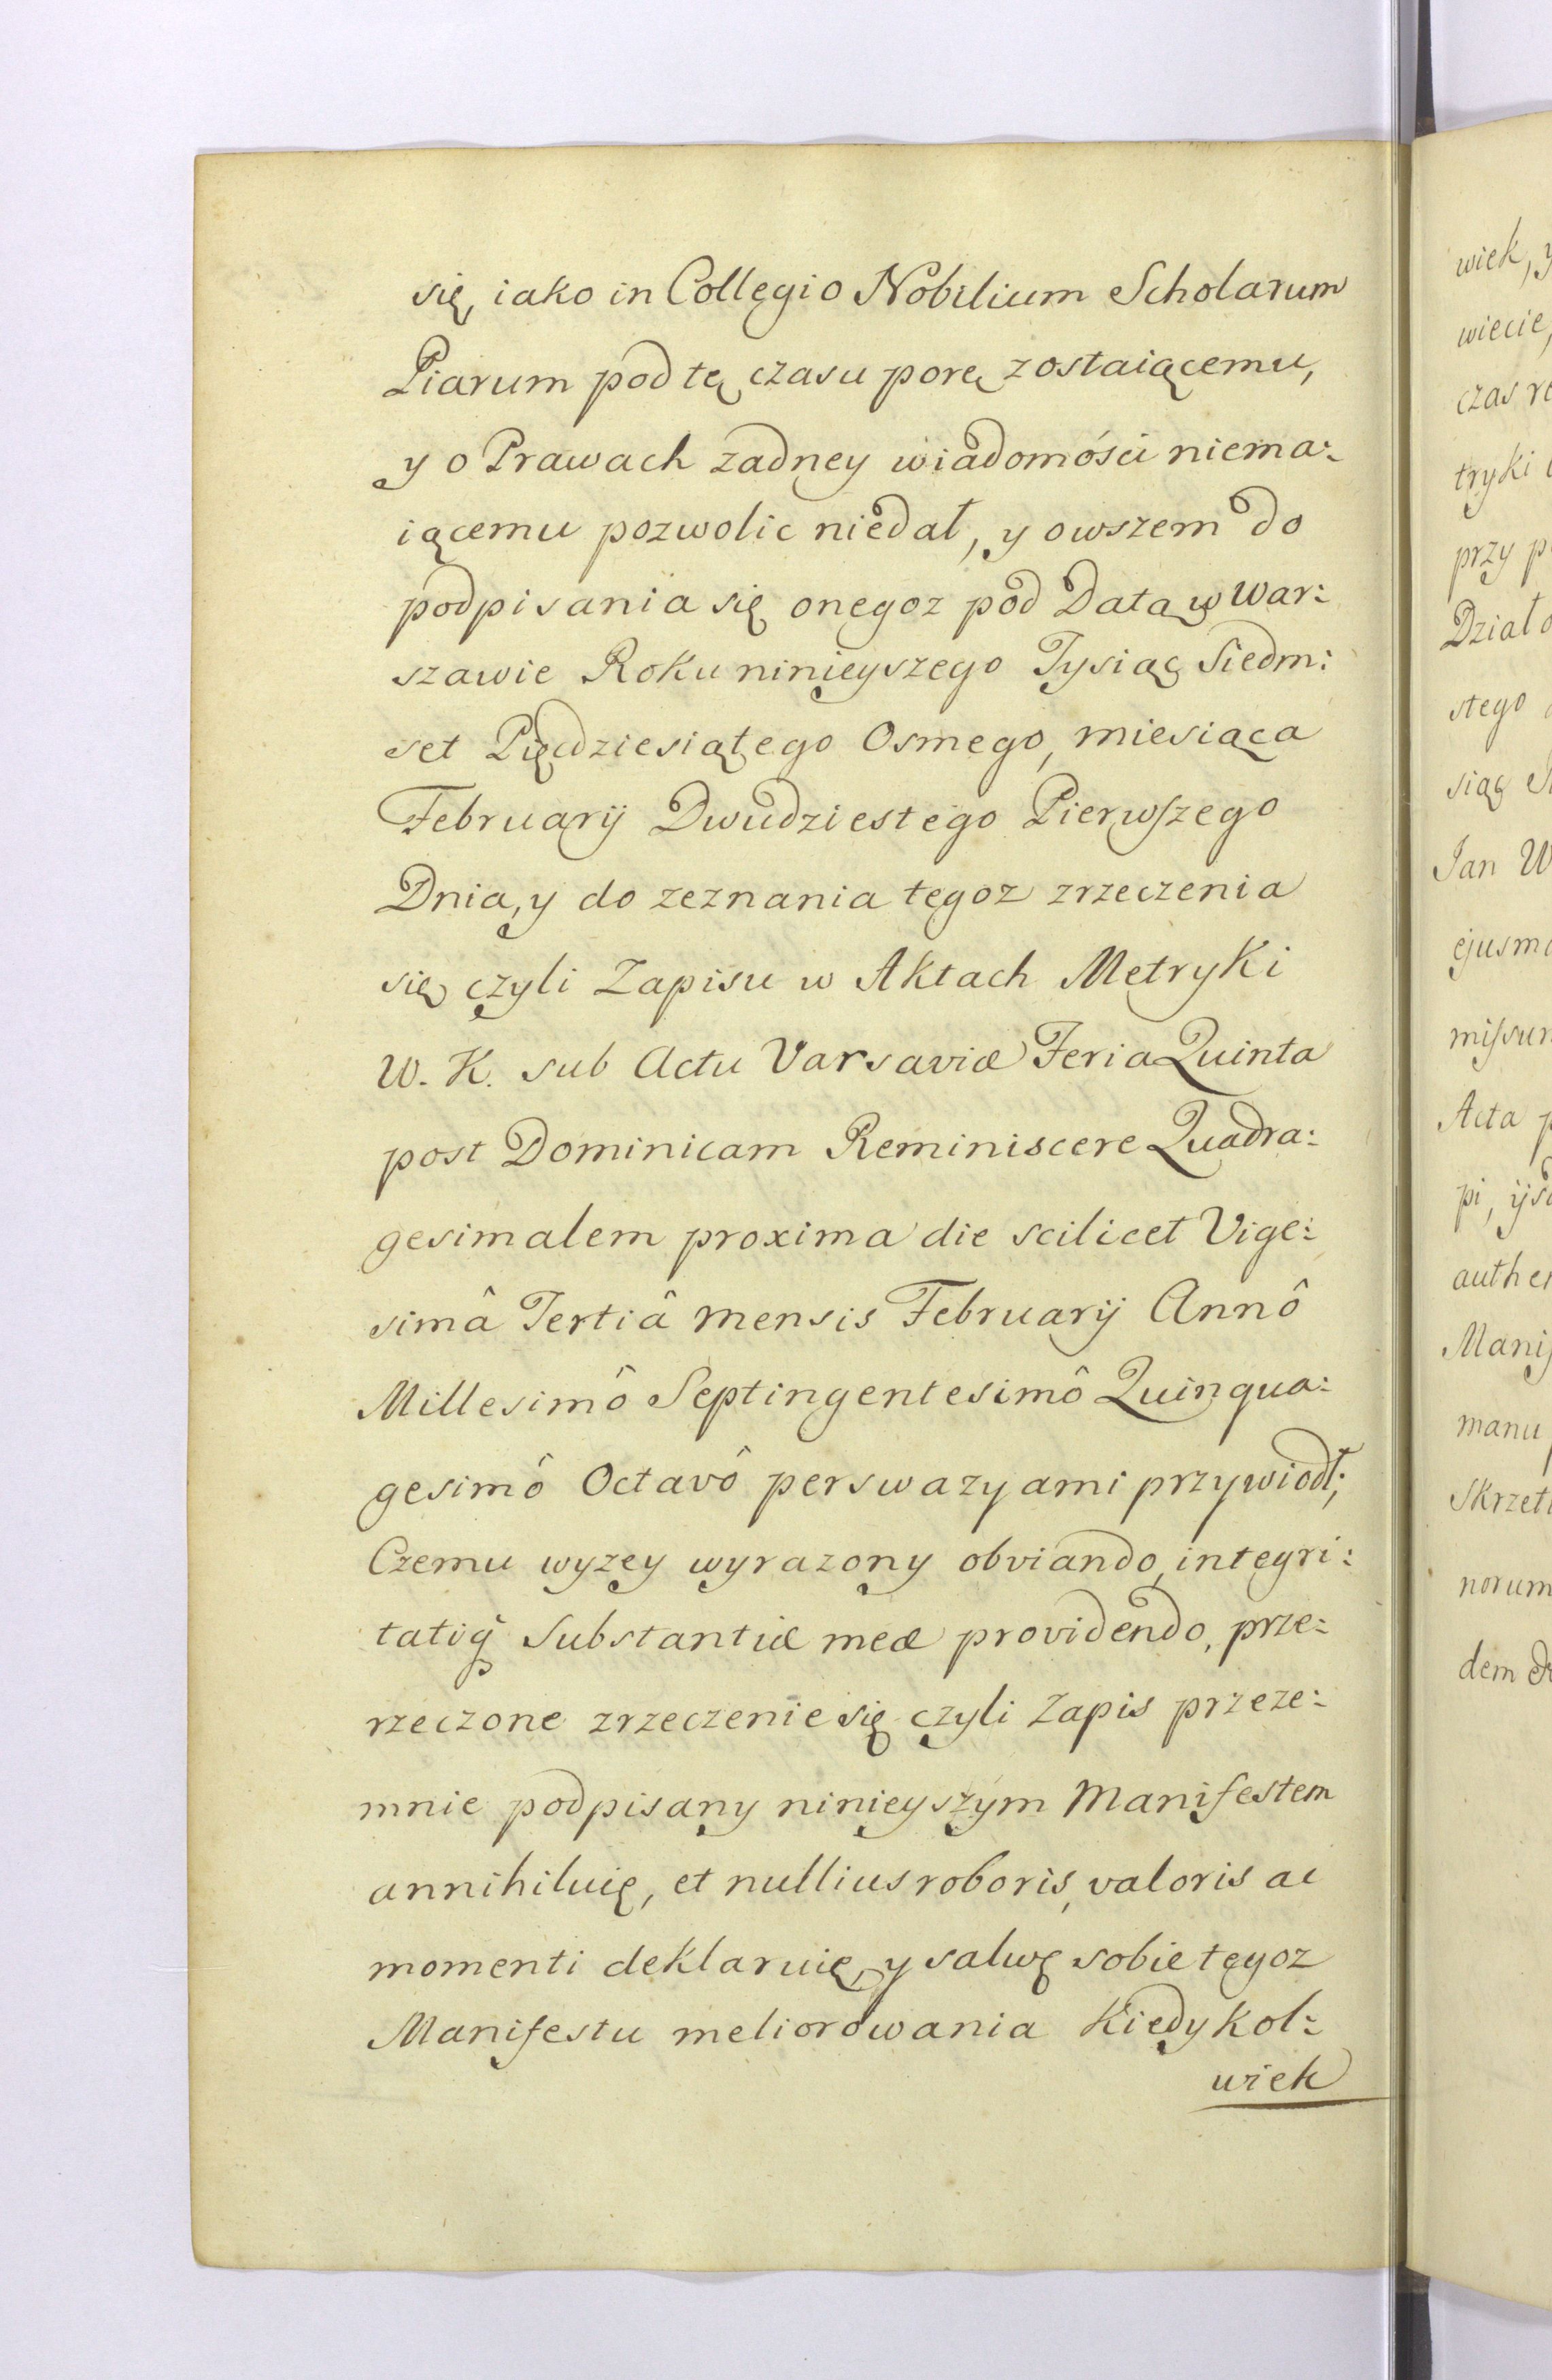 się, iako in Collegio Nobilium Scholarum
Piarum pod tę czasu porę zostaiącemu,
y o Prawach zadney wiadomości niema:
iącemu pozwolic niedał, y owszem do
podpisania się onegoz pod Datą w War:
szawie Roku ninieyszego Tysiąc Siedm:
set Pięcdziesiątego Osmego, miesiąca
Februarij Dwudziestego Pierwszego
Dnia, y do zeznania tegoz zrzeczenia
się czyli Zapisu w Aktach Metryki
W. K. sub Actu Varsaviæ Feria Quinta
post Dominicam Reminiscere Quadra:
gesimalem proxima die scilicet Vige:
simâ Tertiâ mensis Februarij Annô
Millesimô Septingentesimô Quinqua:
gesimô Octavô perswazyami przywiodł;
Czemu wyzey wyrazony obviando, integri:
tatiq substantiæ meæ providendo, prze:
rzeczone zrzeczenie się czyli Zapis przeze:
mnie podpisany ninieyszym Manifestem
annihiluię, et nullius roboris, valoris ac
momenti deklaruię, y salwę sobie tegoz
Manifestu meliorowania kiedykol:
wiek
wiek, y
wiecie,
czas
tryki
przy
Dział
stego
siąc
Jan W
ejusm
missum
Acta
pi,
authen
Manif
manu
Skrzet
norum
dem